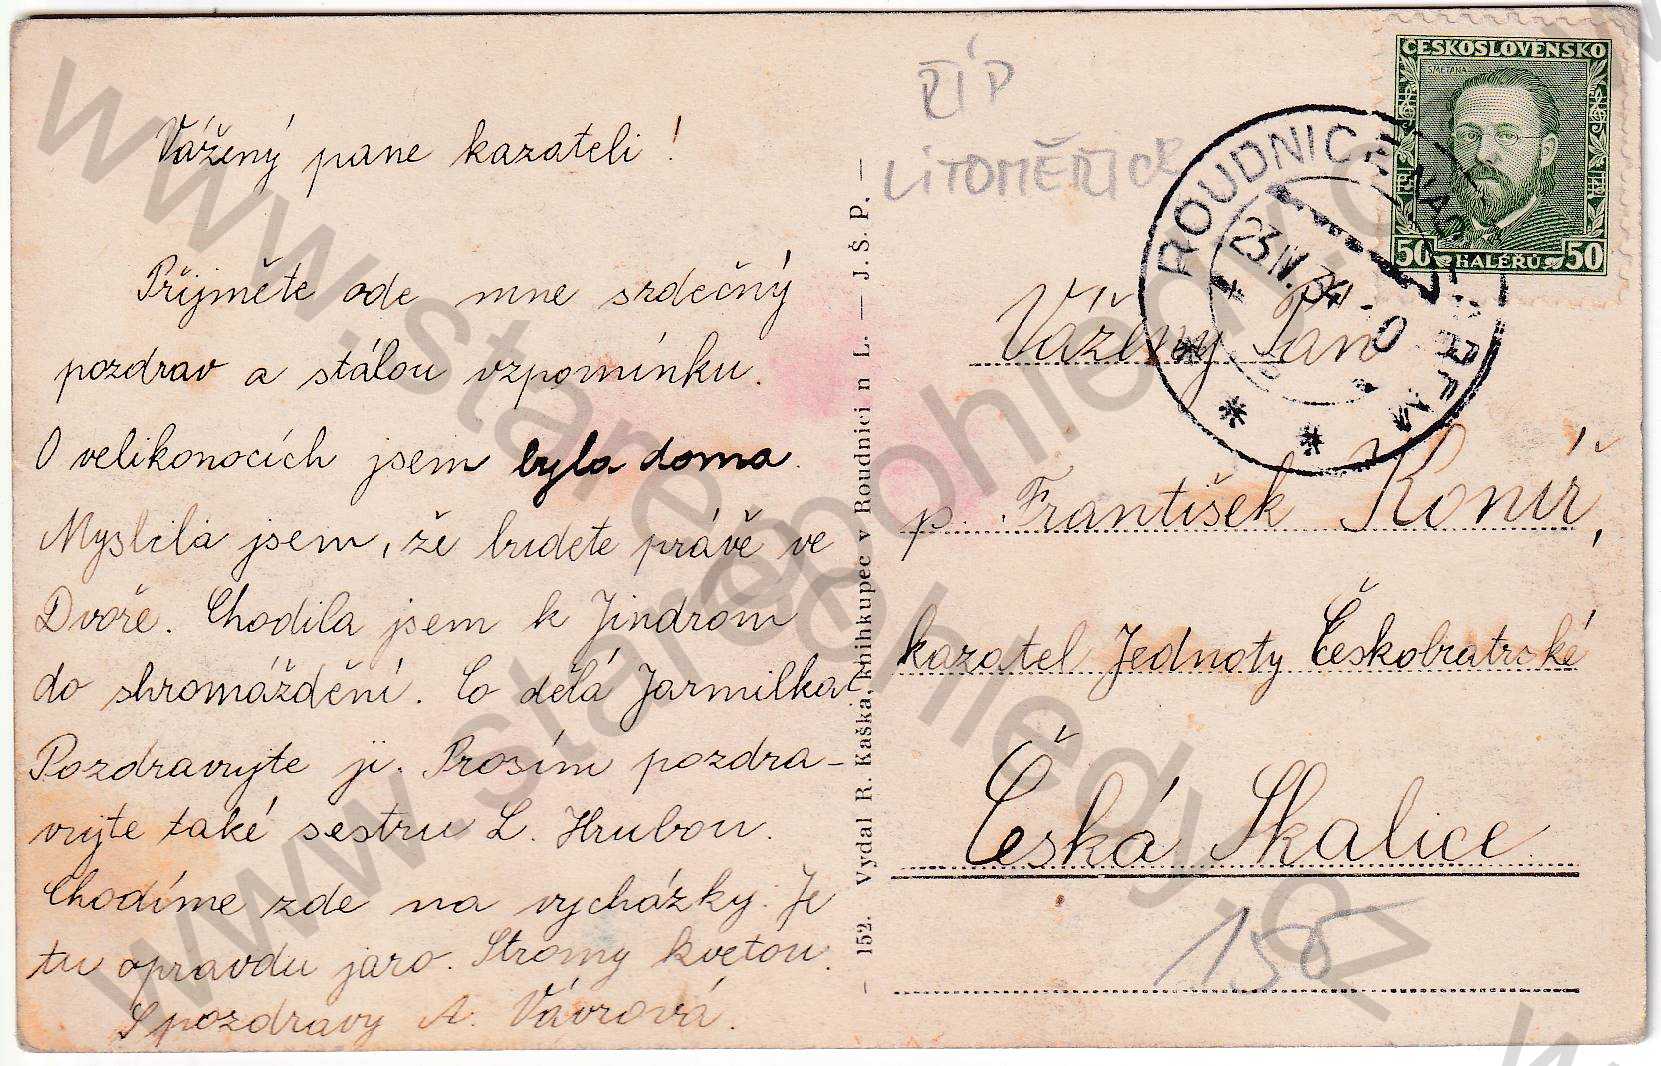 Vážený pane kazateli!
Přijměte ode mne srdečný
pozdrav a stálou vzpomínku.
O velikonocích jsem byla doma.
Myslila jsem, že budete právě ve
Dvoře. Chodila jsem k Jindrom
do shromáždění. Co dělá Jarmilka?
Pozdravujte ji. Prosím pozdra-
vujte také sestru L. Hrubou.
Chodíme zde na vycházky. Je
tu opravdu jaro. Stromy kvetou.
S pozdravy A. Vávrová.
— 152. Vydal R. Kaška, knihkupec v Roudnici n L. — J. Š. P. —
ŘÍP
LITOMĚŘICE
ČESKOSLOVENSKO
SMETANA
50 HALÉŘŮ 50
ROUDNICE NAD LABEM
23.IV.34
Vážený Pan
p. František Koníř,
kazatel Jednoty Českobratrské
Česká Skalice
150
www.starepohledy.cz
www.starepohledy.cz